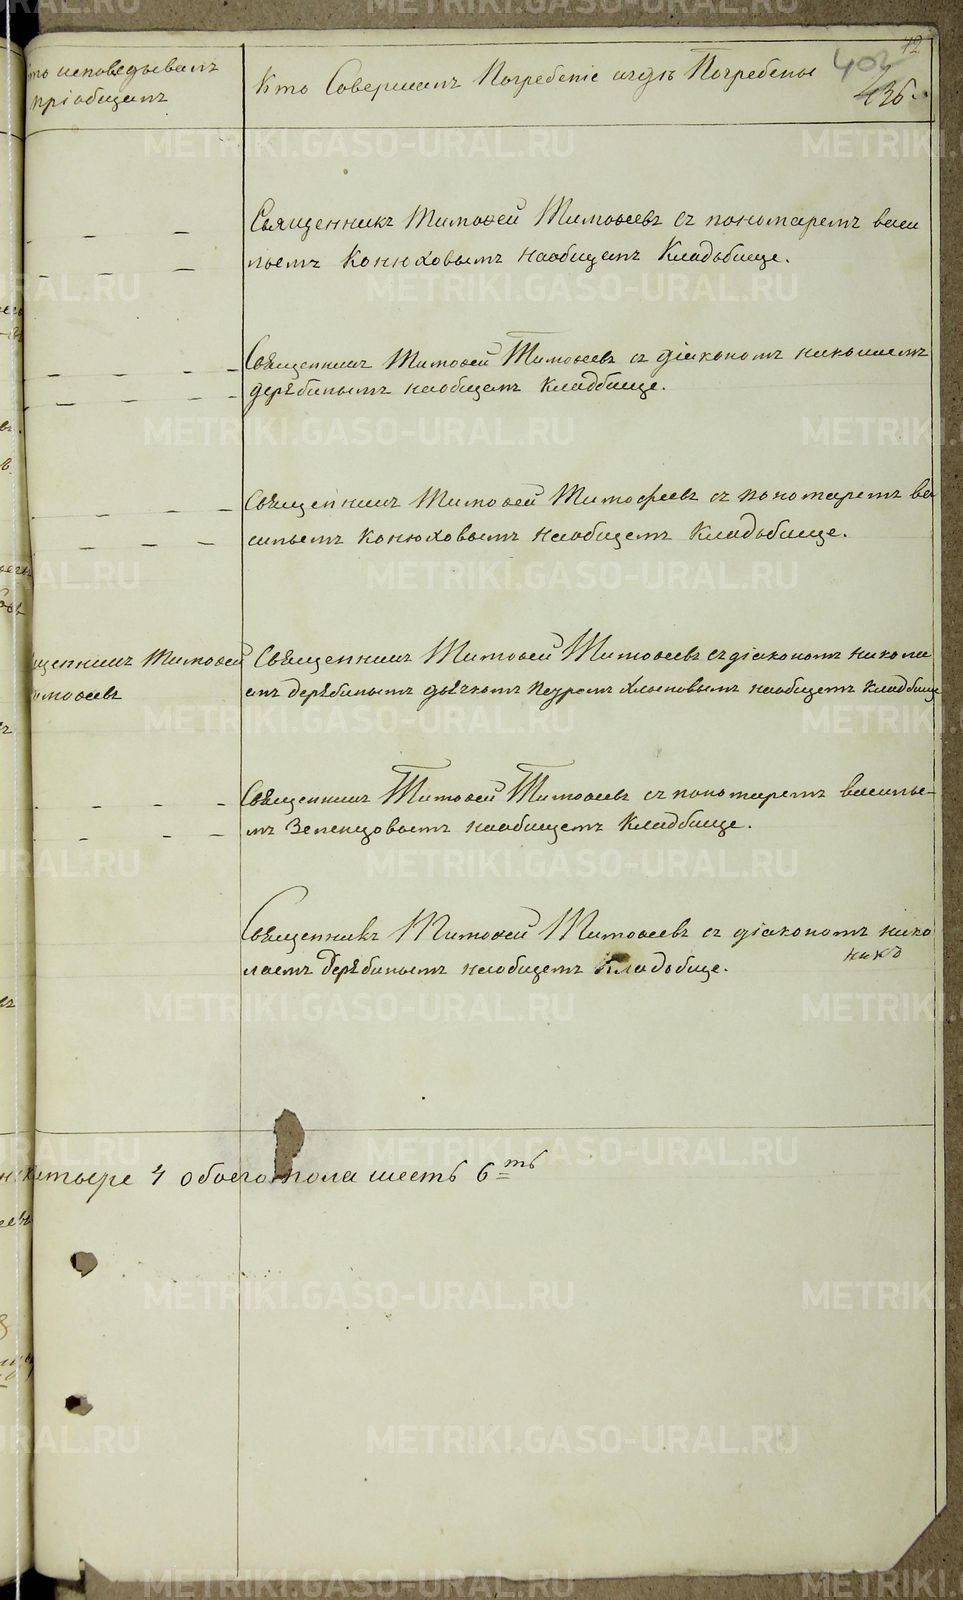 кто исповедывалъ
пріобщалъ
Кто Совершалъ Погребеніе и гдѣ Погребены
12
402
436.
Священникъ Тимоѳей Тимоѳеевъ съ пономаремъ васи
льемъ Конюховымъ наобщемъ Кладъбище.
Свѣщенникъ Тимоѳей Тимоѳеевъ съ діакономъ николаемъ
дерѣбинымъ наобщемъ Кладбище.
Свѣщенникъ Тимоѳей Тимофеевъ съ пономаремъ ва
сильемъ Конюховымъ наобщемъ Кладъбище.
щенникъ Тимоѳей
имоѳеевъ
Свѣщенникъ Тимоѳей Тимоѳеевъ съ діакономъ никола
емъ дерѣбинымъ дьячкомъ наобщемъ Кладбище
Свѣщенникъ Тимоѳей Тимоѳеевъ съ пономаремъ василье-
мъ Зеленцовымъ наобщемъ Кладбище.
Свѣщенникъ Тимоѳей Тимоѳеевъ съ діакономъ нико
лаемъ Дерѣбинымъ наобщемъ Кладъбище.
никъ
четыре 4 обоего пола шесть 6-ть
METRIKI.GASO-URAL.RU